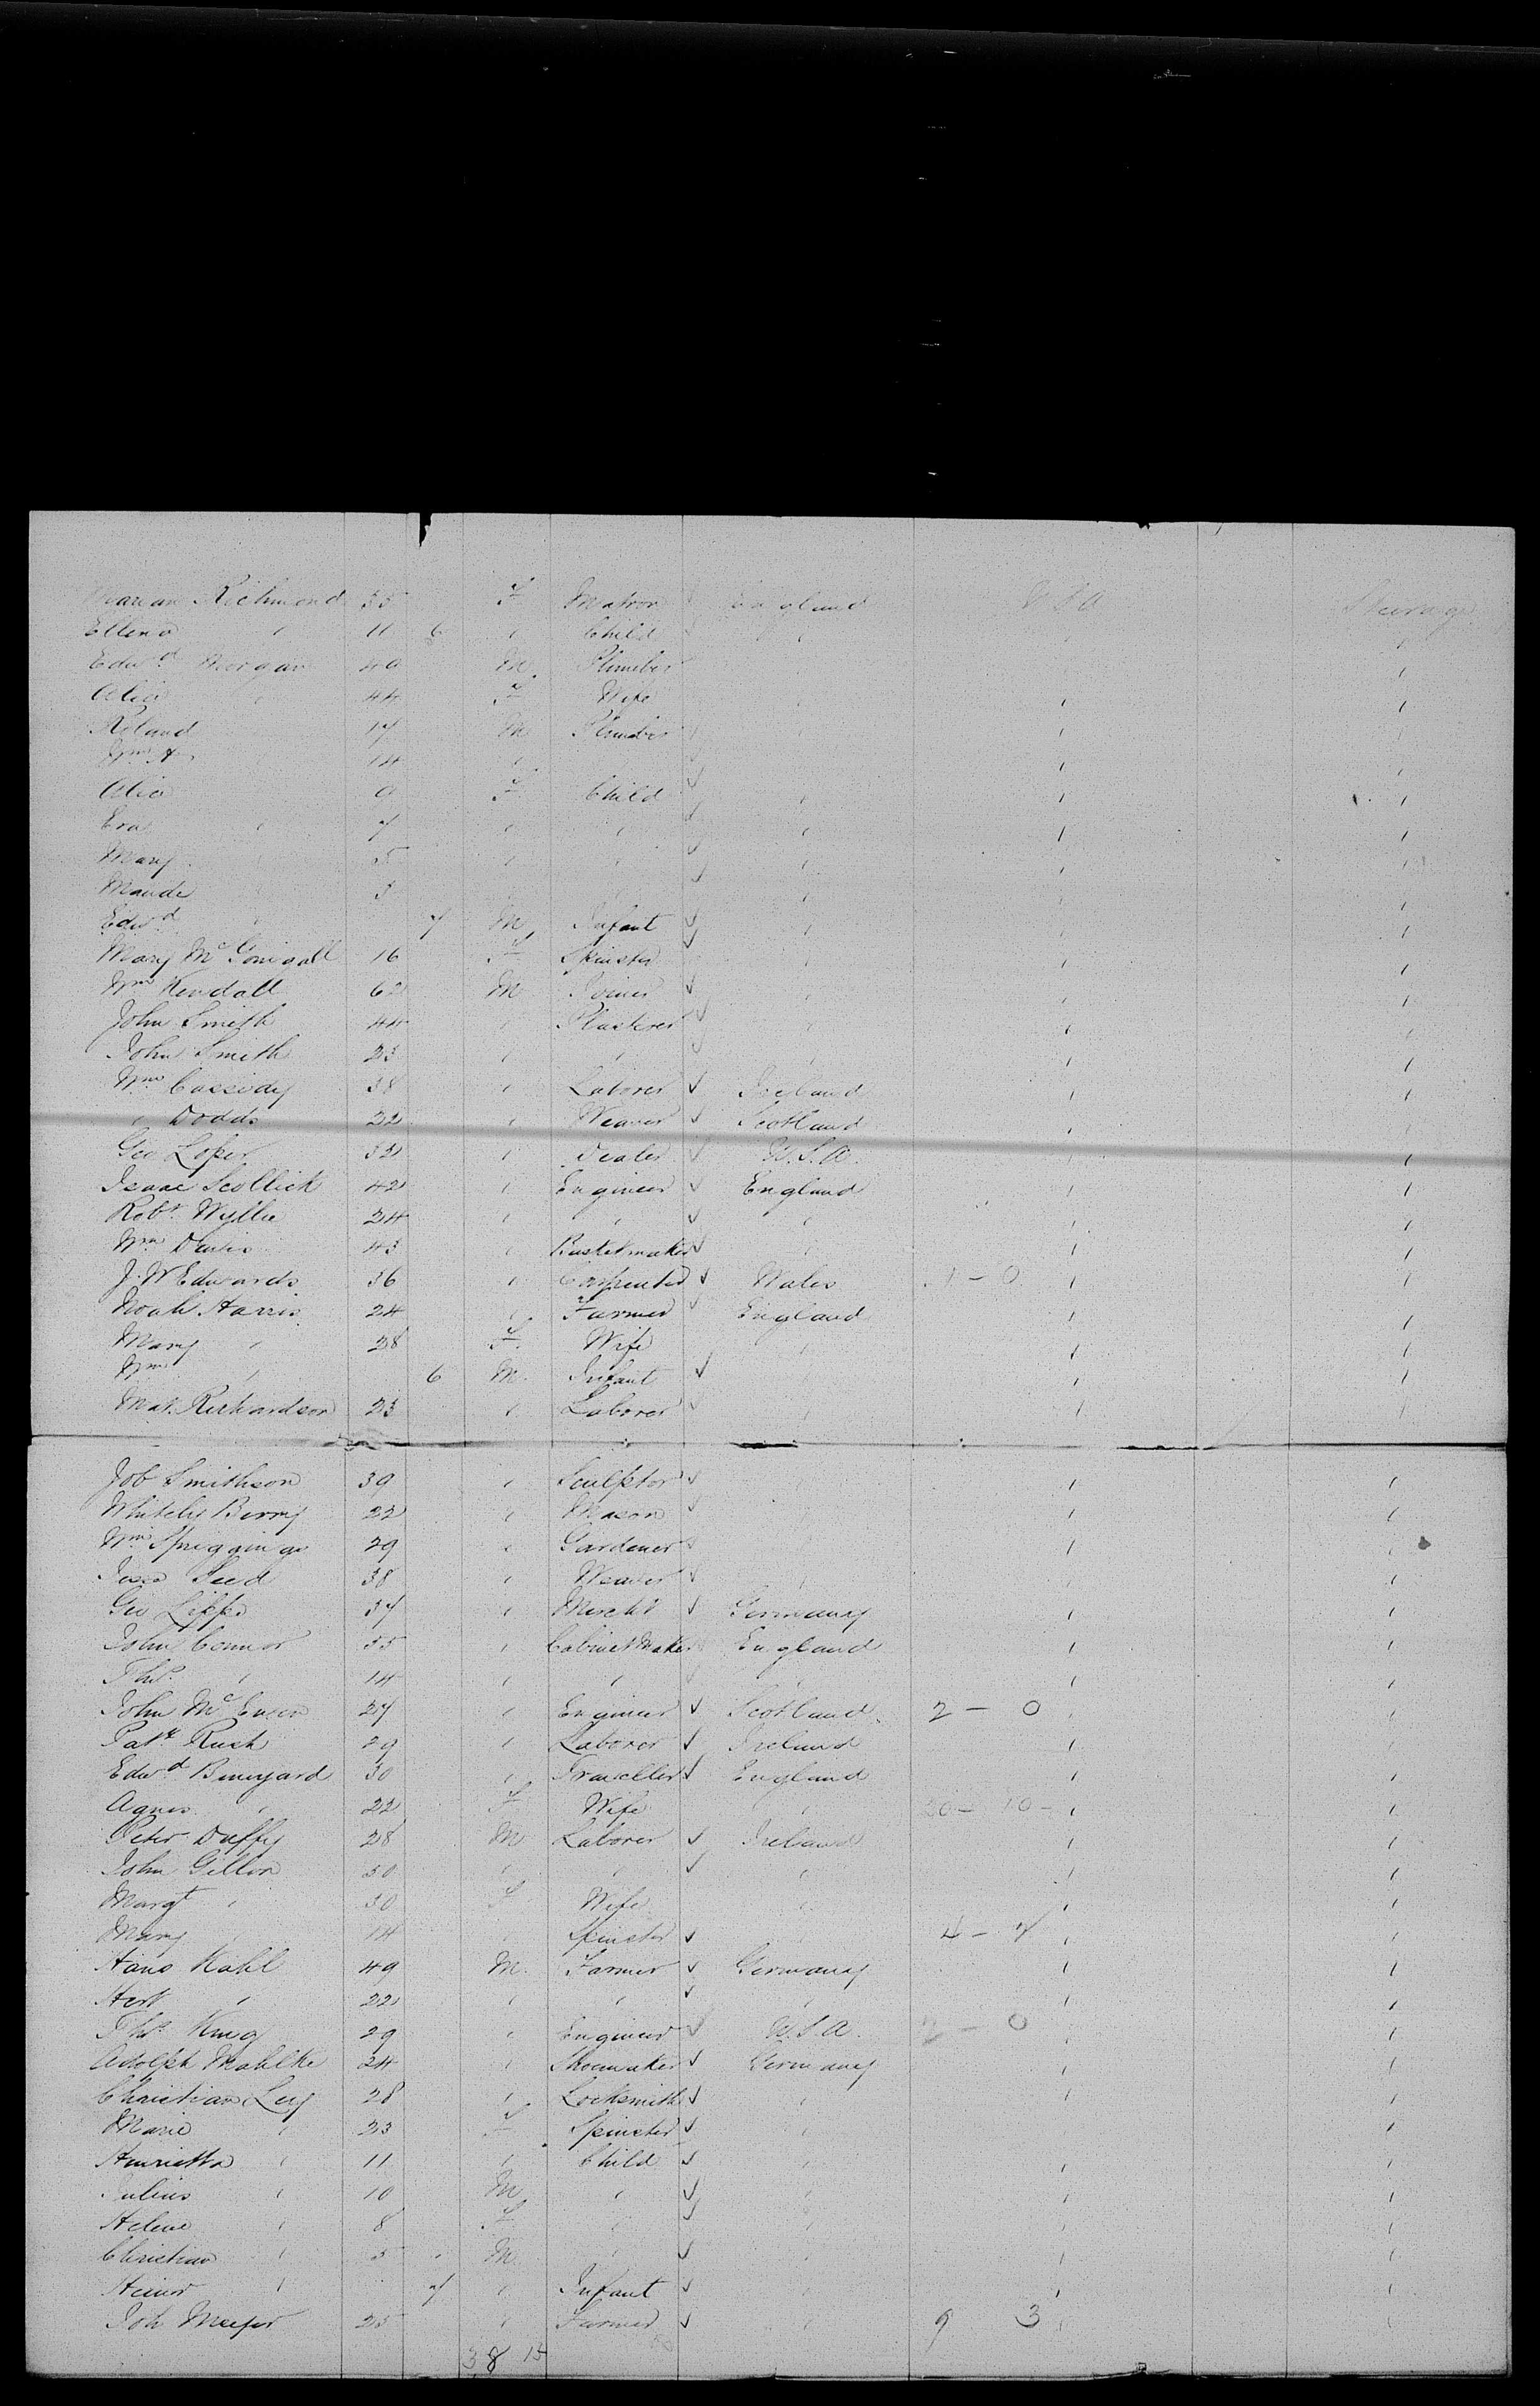 Marian Richmond 35 F Matron England U.S.A. Steerage
Ellen " 11 6 " Child " " "
Edwd Morgan 40 M Plumber " " "
Alice " 44 F Wife " " "
Roland " 17 M Plumber " " "
Wm A. " 14 " " " " "
Alice " 9 F Child " " "
Eva " 7 " " " " "
Mary " 5 " " " " "
Maude " 3 " " " " "
Edwd " 7 M Infant " " "
Mary McGonigall 16 F Spinster " " "
Wm Kendall 62 M Joiner " " "
John Smith 44 " Plasterer " " "
John Smith 23 " " " " "
Wm Cassidy 38 " Laborer Ireland " "
" Dodds 22 " Weaver Scotland " "
Geo Loper 32 " Dealer U.S.A. " "
Isaac Scollick 42 " Engineer England " "
Robt Wyllie 24 " " " " "
Wm Davis 43 " Basketmaker " " "
J. W Edwards 36 " Carpenter Wales 1 - 0 " "
Noah Harris 24 " Farmer England " "
Mary " 28 F. Wife " " "
Wm " 6 M. Infant " " "
Mat. Richardson 23 " Laborer " " "
Job Smithson 39 " Sculptor " "
Whitely Berry 22 " Mason " "
Wm Spriggings 29 " Gardener " "
Seed 38 " Weaver " " "
Geo Lipps 37 " Mercht Germany " "
John Connor 55 " Cabinet Maker England " "
Thos. " 14 " " " " "
John McEwen 27 " Engineer Scotland 2 - 0 " "
Patk Rush 29 " Laborer Ireland " "
Edwd Bunyard 30 " Traveller England " "
Agnes " 22 F Wife " 20 - 10 - " "
Peter Duffy 28 M Laborer Ireland " "
John Gillon 30 " " " " "
Margt " 30 F Wife " " "
Mary " 14 " Spinster " 4 - 7 " "
Hans Kahl 49 M. Farmer Germany " "
" 22 " " " " "
Thos. King 29 " Engineer U.S.A. 2 - 0 " "
Adolph Mahlke 24 " Shoemaker Germany " "
Christian Ley 28 " Locksmith " " "
Marie " 23 F Spinster " " "
Henrietta " 11 " Child " " "
Julius " 10 M " " " "
Helene " 8 F " " " "
Christian " 3 M. " " " "
" 7 " Infant " " "
Joh 25 " Farmer " 9 3 " "
38 15